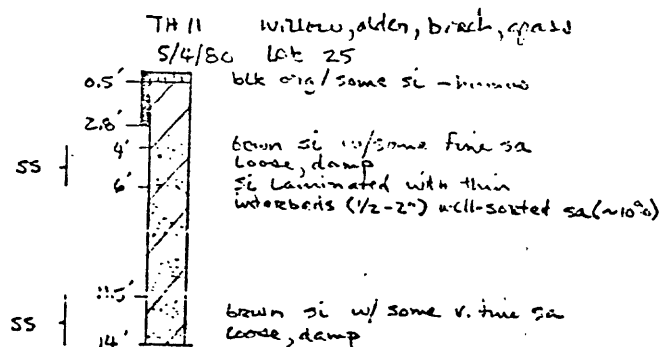 TH 11 willow, alder, birch, grass
5/4/80 Lot 25
0.5' blk org/some si -
2.8'
4' brwn si w/some fine sa
SS loose, damp
6' si laminated with thin
interbeds (1/2-2") well-sorted sa (~10%)
11.5' brwn si w/ some v. fine sa
SS loose, damp
14'